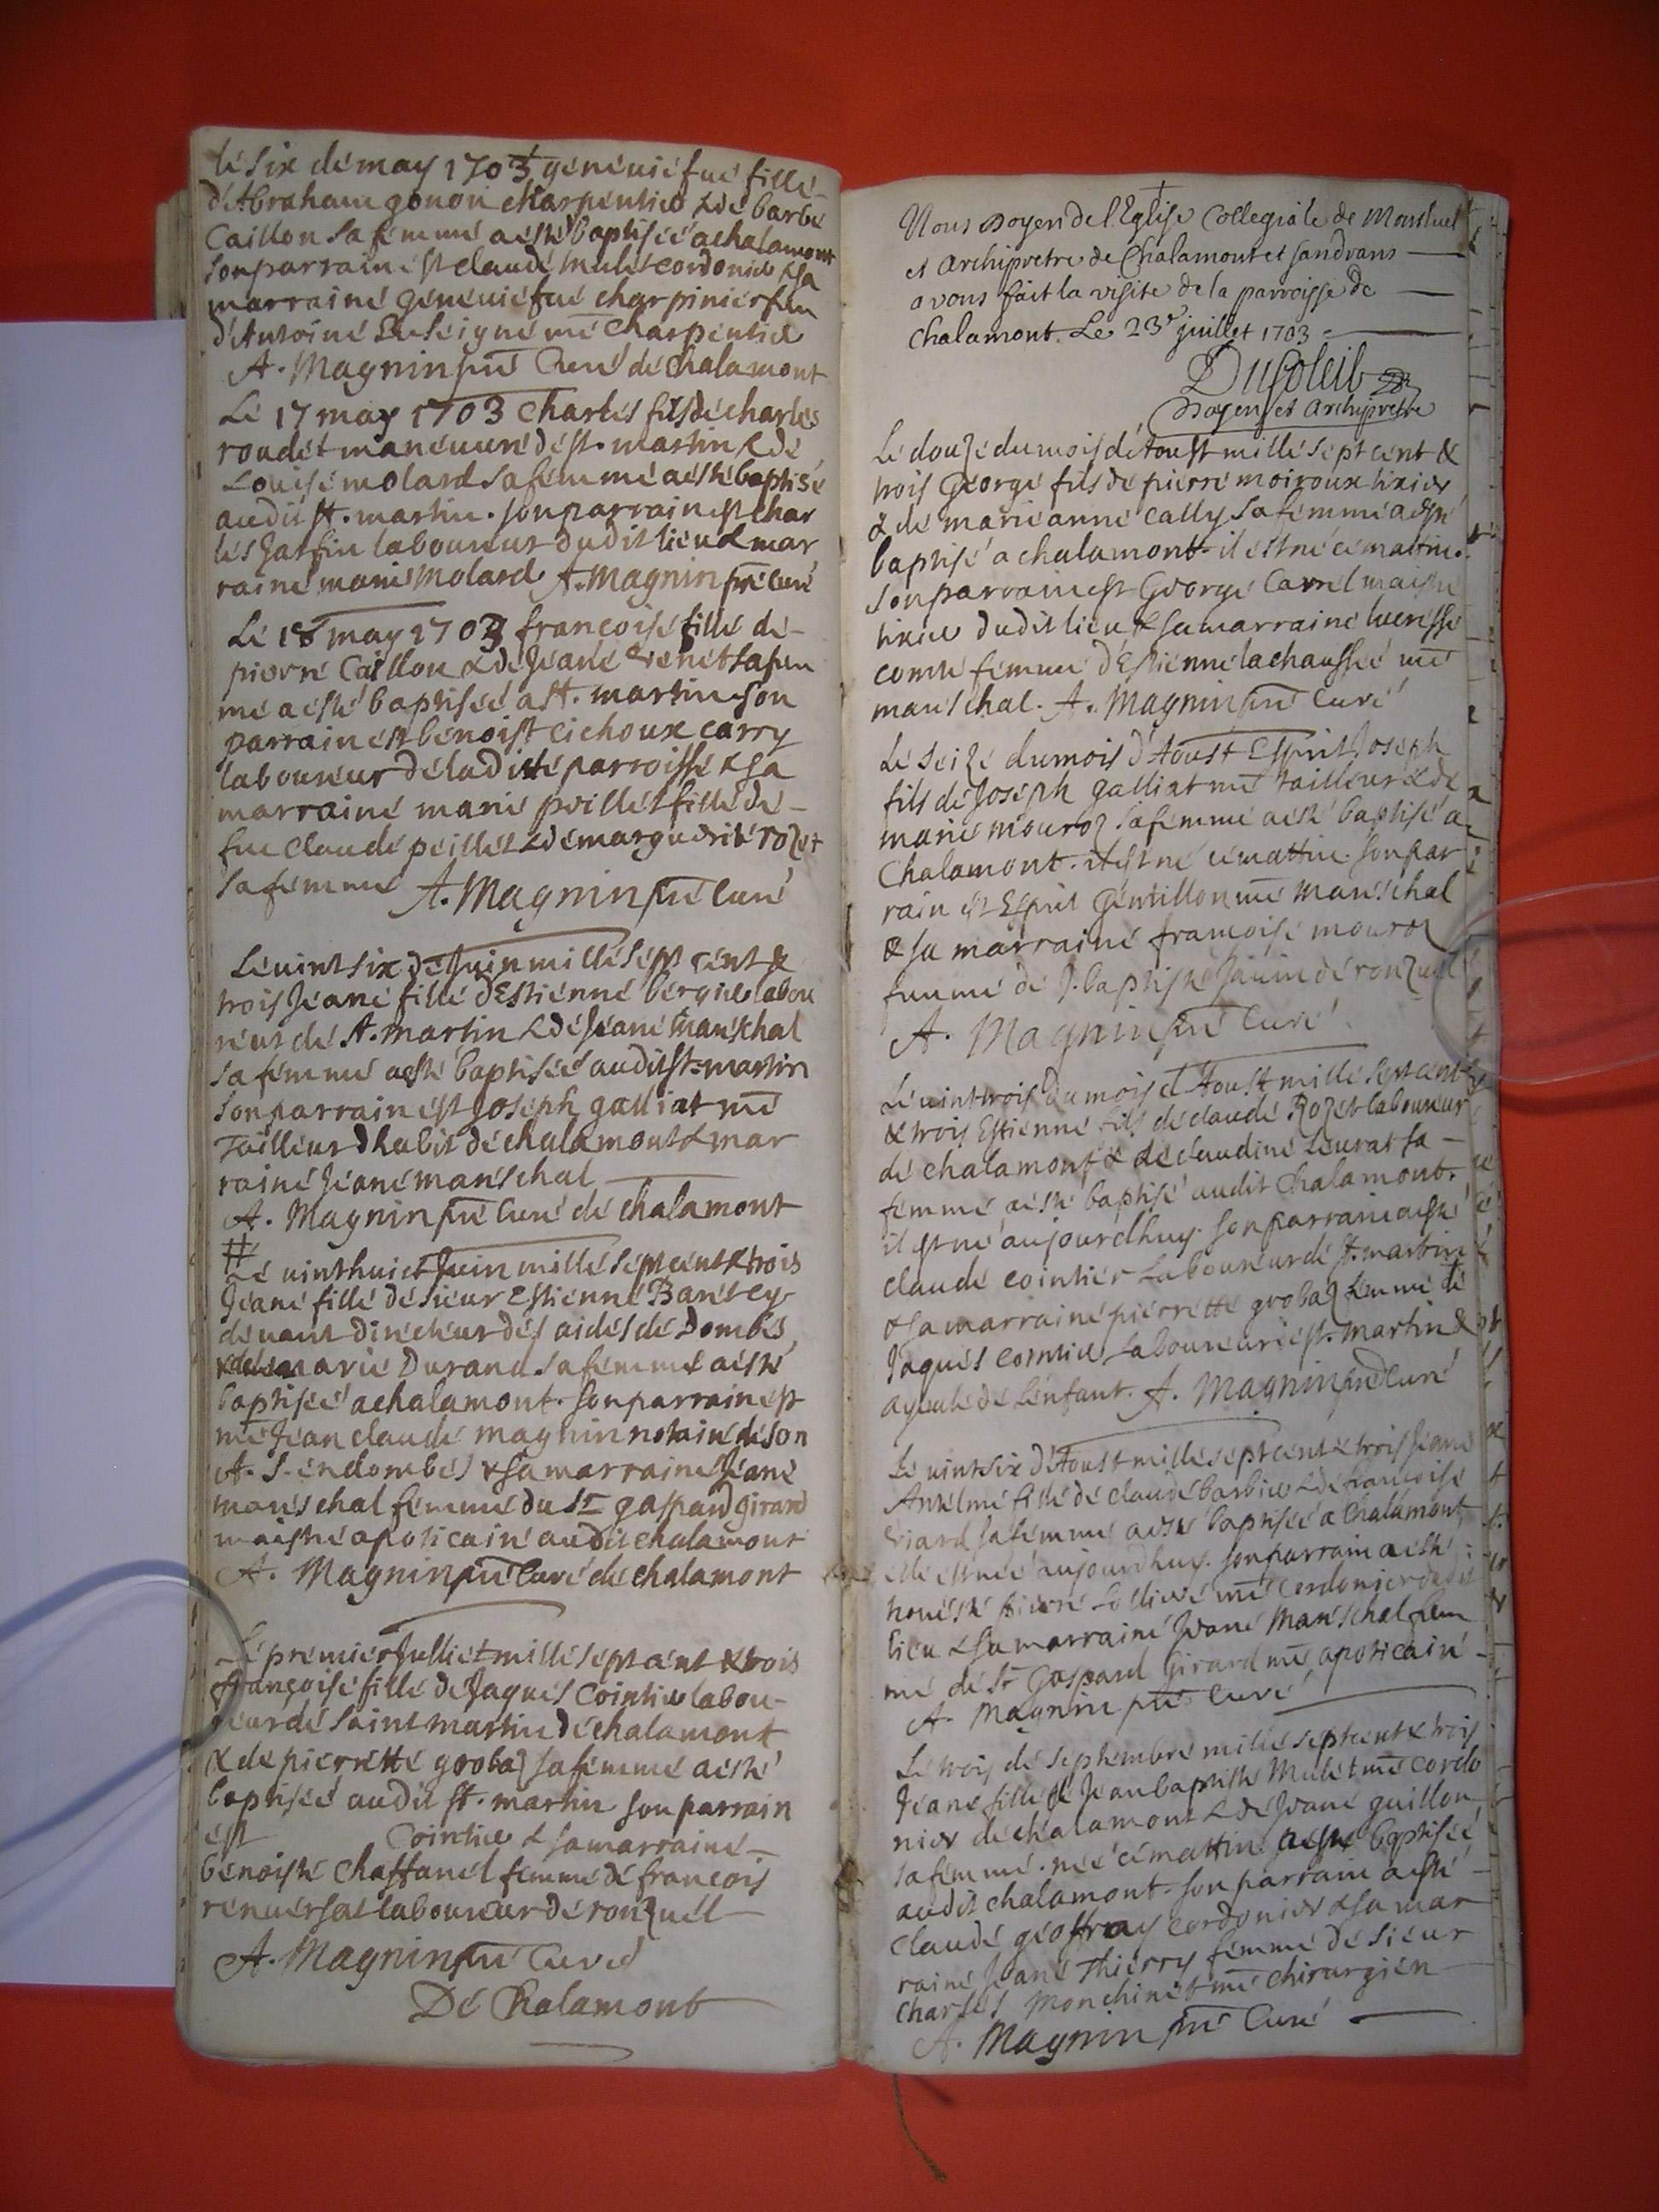 le six de may 1703 geneuiefue fille
d'Abraham gonon charpentier & de barbe
Caillon sa femme a esté baptisée a chalamont
son parrain est claude mulet cordonier & sa
marraine geneuiefue charpinier fem
d'Antoine me charpentier
A. Magnin pre Curé de chalamont
Le 17 may 1703 Charles fils de charles
roudet maneuure de st. martin & de
Louise molard sa femme a esté baptisé
audit st. martin. son parrain est char
les Jatfin laboureur dudit lieu & mar
raine marie Molard A. Magnin pre curé
Le 18 may 1703 francoise fille de
pierre Caillon & de Jeane sa fem
me a esté baptisée a st. martin son
parrain est benoist cichoux carry
laboureur de la dite parroisse & sa
marraine marie peillet fille de
fue claude peillet & de marguerite rozet
sa femme A. Magnin pre curé
Le uint six de Juin mille sept cent &
trois Jeane fille d'Estienne bergier labou
reur de st. martin & de Jeane mareschal
sa femme a esté baptisée audit st. martin
son parrain est Joseph galliat me
tailleur d'habit de chalamont & mar
raine Jeane mareschal
A. Magnin pre Curé de chalamont
#
Le uinthuict Juin mille sept cent & trois
Jeane fille de sieur Estienne Barèt cy
deuant directeur des aides de Dombes
& de marie Durand sa femme a esté
baptisée a chalamont. son parrain est
me Jean claude magnin notaire de son
A. S. en dombes & sa marraine Jeane
mareschal femme du Sr gaspard girard
maistre apoticaire audit chalamont
A. Magnin pre Curé de chalamont
Le premier Julliet mille sept cent & trois
françoise fille de Jaques Cointier labou-
reur de saint martin de chalamont
& de pierrette grobaz sa femme a esté
baptisée audit st. martin son parrain
est Cointier & sa marraine
benoiste chaffanel femme de françois
renuersat laboureur de ronzuel
A. Magnin pre Curé
De Chalamont
Nous Doyen de l'Eglise Collegiale de Montluel
et Archipretre de Chalamont et sandrans
avons fait la visite de la parroisse de
Chalamont. Le 23e juillet 1703
DuSoleil
Doyen et Archipretre
Le douze du mois d'Aoust mille sept cent &
trois George fils de pierre moiroux tixier
& de marieanne cally sa femme a esté
baptisé a chalamont. il est né ce mattin.
son parrain est George Carrel maistre
tixier dudit lieu & sa marraine lucresse
comte femme d'Estienne lachaussée me
mareschal. A. Magnin pre Curé
Le seize du mois d'Aoust Esprit Joseph
fils de Joseph galliat me tailleur & de
marie mouroz sa femme a esté baptisé a
Chalamont. il est né ce mattin. son par
rain est Esprit Gentillon me mareschal
& sa marraine francoise mouroz
femme de J. baptiste de ronzuel
A. Magnin pre Curé
Le uintrois du mois d'Aoust mille sept cent
& trois Estienne fils de claude Rozet laboureur
de chalamont & de claudine Leurat sa
femme a esté baptisé audit Chalamont.
il est né aujourdhuy. son parrain a esté
claude cointier Laboureur de st. martin
& sa marraine pierrette grobaz femme de
Jaques cointier Laboureur de st. martin &
ayeule de l'enfant. A. Magnin pre Curé
Le uint six d'Aoust mille sept cent & trois Jeane
Antelme fille de claude barbier & de francoise
Viard sa femme a esté baptisée a Chalamont
elle est née aujourdhuy. son parrain a esté
honeste pierre Lolliere me Cordonier dudit
lieu & sa marraine Jeane Mareschal fem
me de sr Gaspard Girard me apoticaire
A. Magnin pre Curé
Le trois de septembre mille sept cent & trois
Jeane fille de Jean baptiste Mulet me cordo
nier de chalamont & de Jeane guillon
sa femme. née ce mattin a esté baptisée
audit chalamont. son parrain a esté
Claude geoffray cordonier & sa mar
raine Jeane Thierry femme de sieur
Charles Monchinet me chirurgien
A. Magnin pre Curé